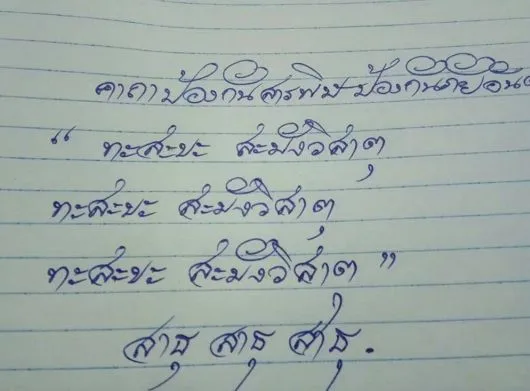 คาถาป้องกันสารพิษ ป้องกันภัยอัน
“ ทะสะขะ สะมังวิสาตุ
ทะสะขะ สะมังวิสาตุ
ทะสะขะ สะมังวิสาตุ ”
สาธุ สาธุ สาธุ.